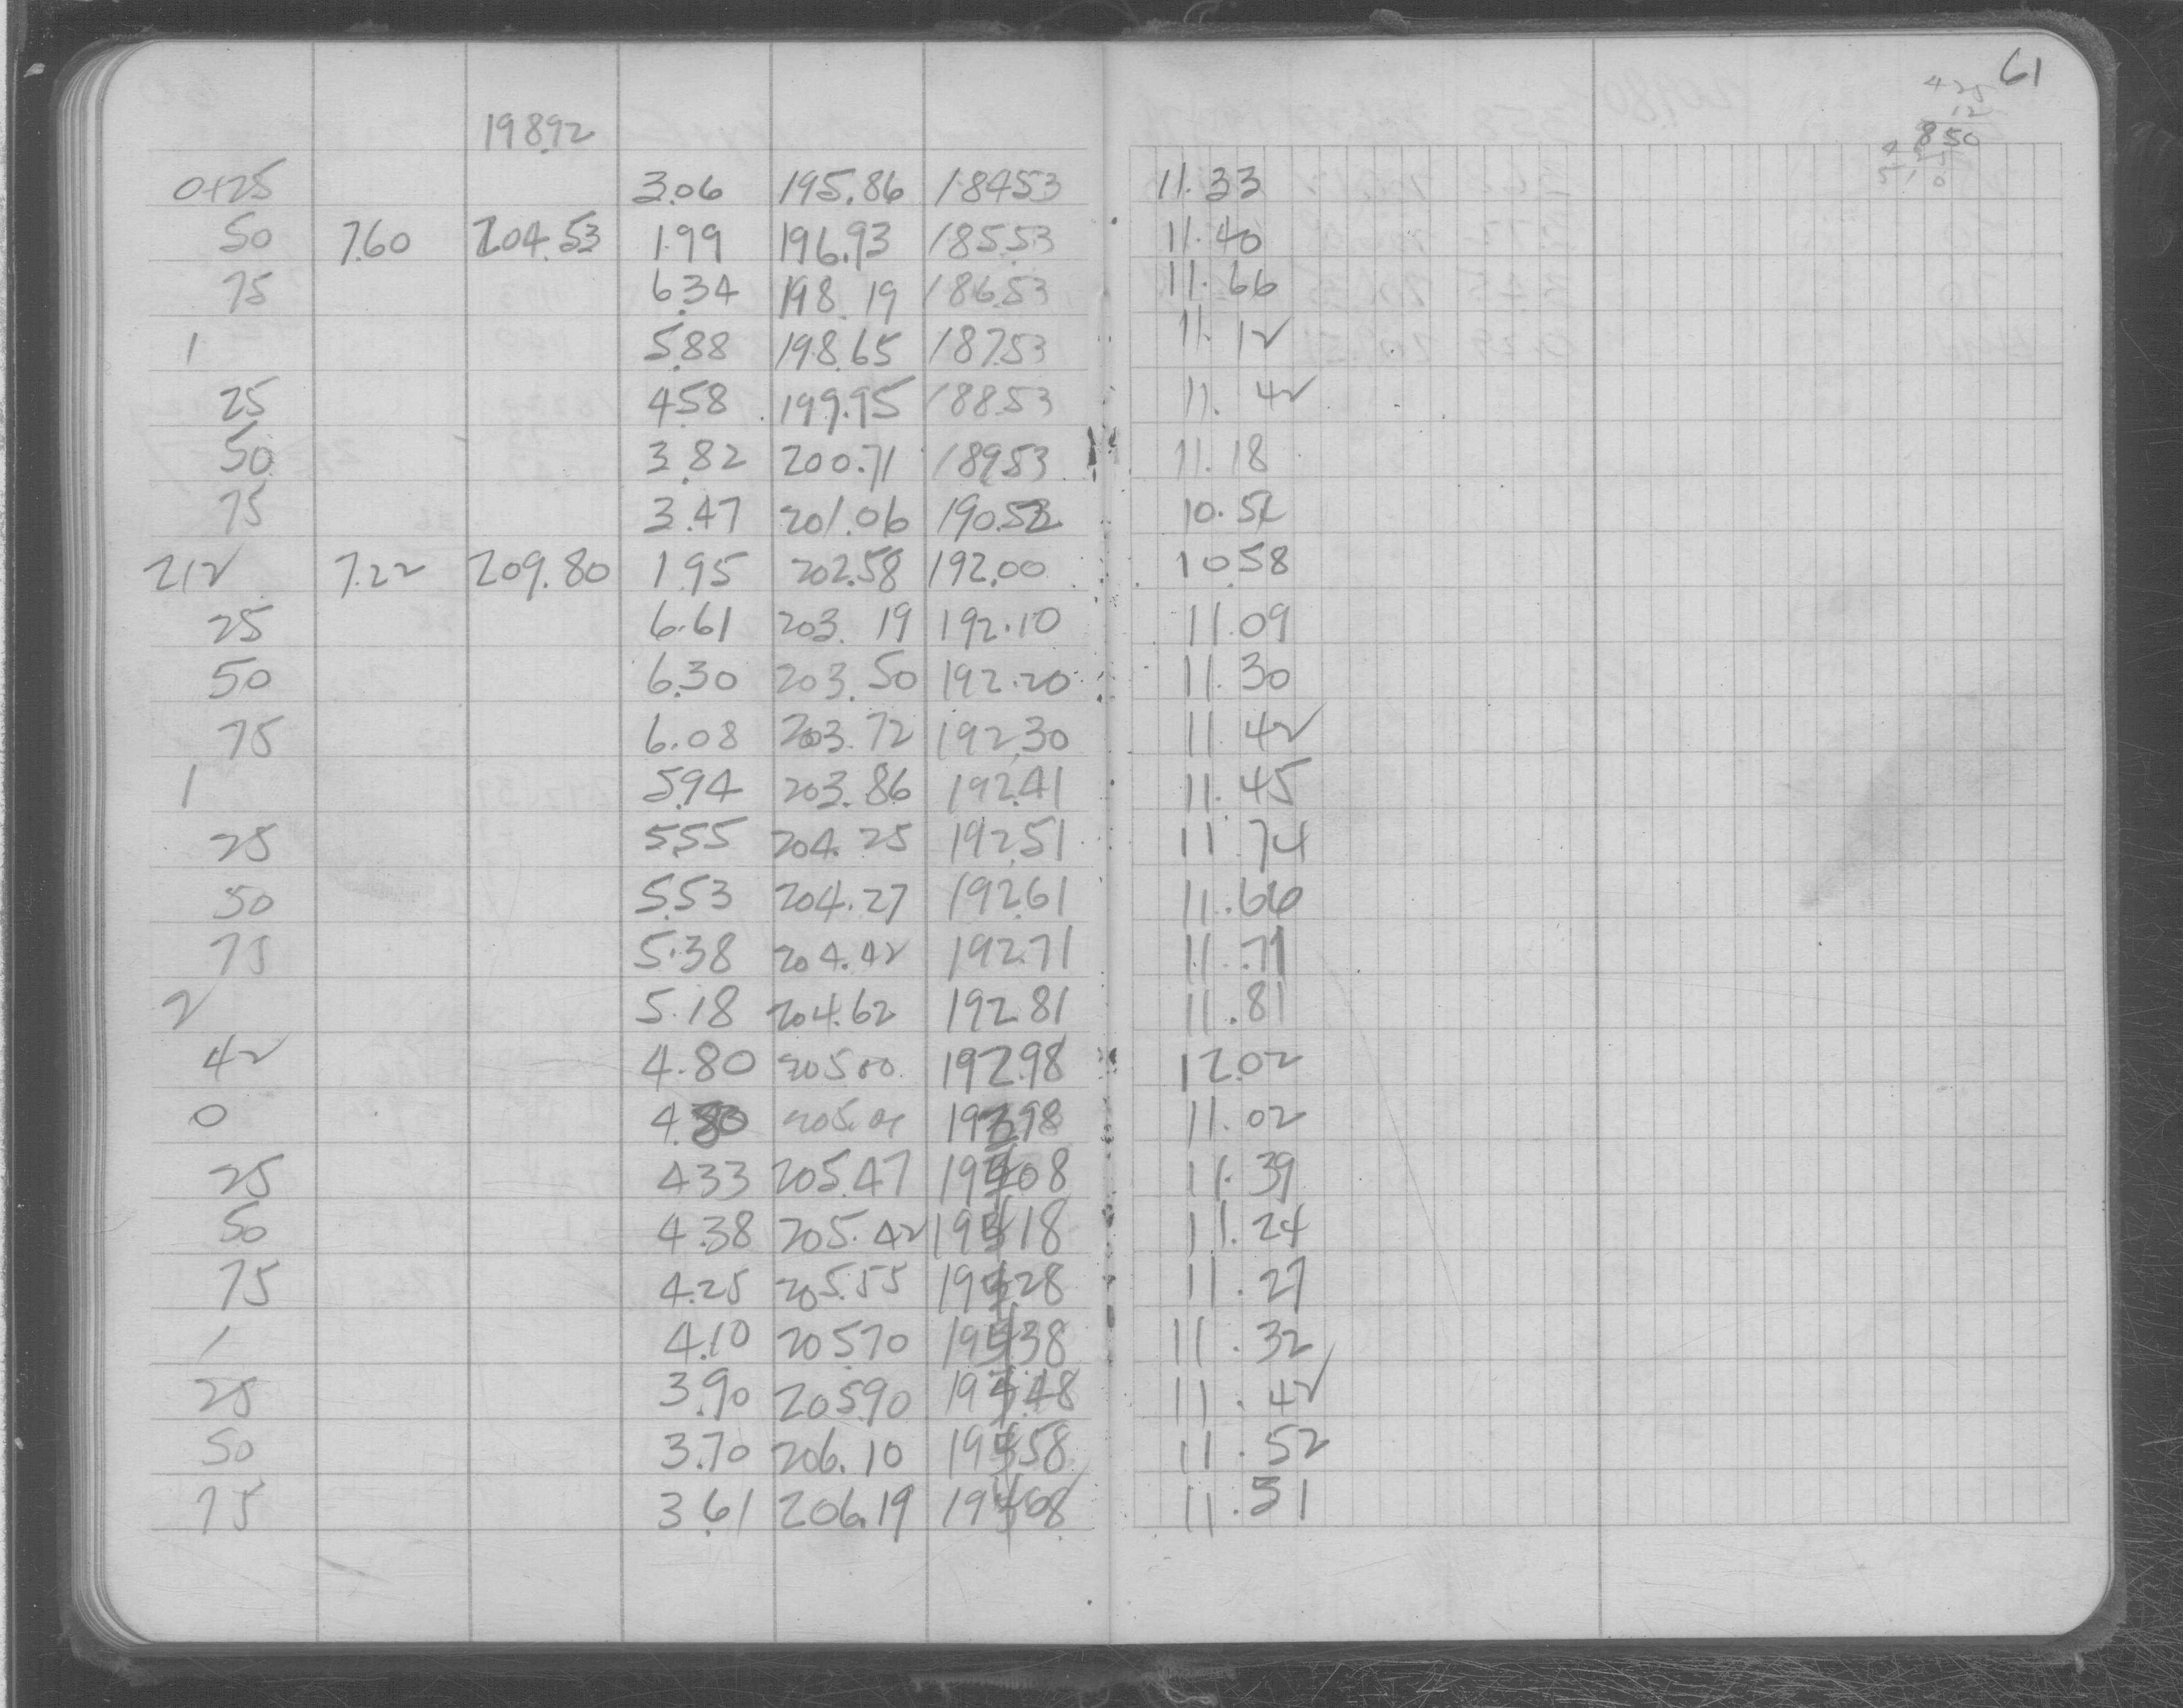 61
425
12
850
198.92
0+25 3.06 195.86 184.53 11.33
50 7.60 204.53 1.99 196.93 185.53 11.40
75 6.34 198.19 186.53 11.66
1 5.88 198.65 187.53 11.12
25 4.58 199.95 188.53 11.42
50 3.82 200.71 189.53 11.18
75 3.47 201.06 190.52
212 7.22 209.80 1.95 202.58 192.00 10.58
25 6.61 203.19 192.10 11.09
50 6.30 203.50 192.20 11.30
75 6.08 203.72 192.30 11.42
1 5.94 203.86 192.41 11.45
25 5.55 204.25 192.51 11.74
50 5.53 204.27 192.61 11.66
75 5.38 204.42 192.71 11.71
2 5.18 204.62 192.81 11.81
42 4.80 205.00 192.98 12.02
0 4.80 11.02
25 4.33 205.47 194.08 11.39
50 4.38 205.42 194.18 11.24
75 4.25 205.55 194.28 11.27
1 4.10 205.70 194.38 11.32
25 3.90 205.90 194.48 11.42
50 3.70 206.10 194.58 11.52
75 3.61 206.19 11.51